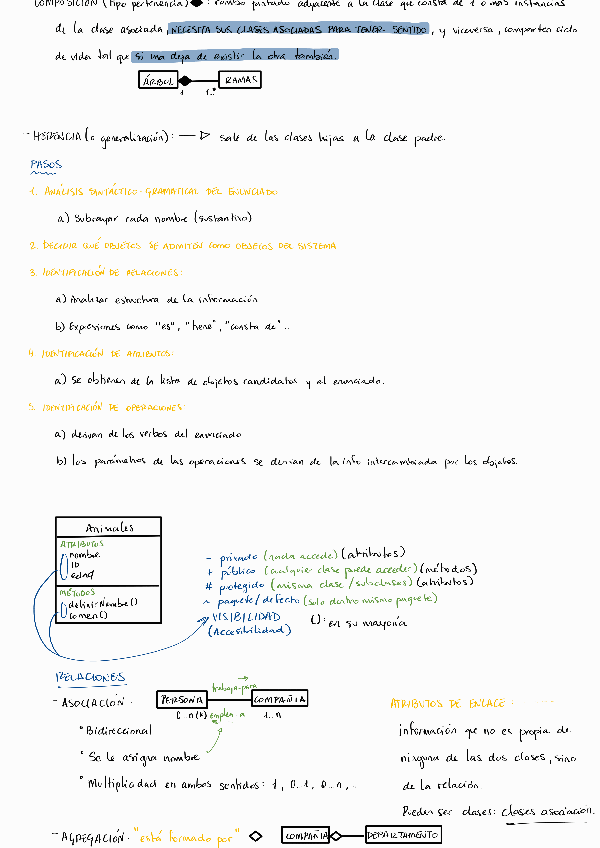 COMPOSICIÓN (tipo pertenencia) ◆ : rombo pintado adyacente a la clase que consta de 1 o más instancias
de la clase asociada, NECESITA SUS CLASES ASOCIADAS PARA TENER SENTIDO, y viceversa, comparten ciclo
de vida tal que si una deja de existir la otra también.
ÁRBOL RAMAS
1 1..*
- HERENCIA (o generalización): —▷ sale de las clases hijas a la clase padre.
PASOS
1. ANÁLISIS SINTÁCTICO-GRAMATICAL DEL ENUNCIADO
a) Subrayar cada nombre (sustantivo)
2. DECIDIR QUÉ OBJETOS SE ADMITEN COMO OBJETOS DEL SISTEMA
3. IDENTIFICACIÓN DE RELACIONES:
a) Analizar estructura de la información
b) Expresiones como "es", "tiene", "consta de"...
4. IDENTIFICACIÓN DE ATRIBUTOS:
a) Se obtienen de la lista de objetos candidatos y el enunciado.
5. IDENTIFICACIÓN DE OPERACIONES:
a) derivan de los verbos del enunciado
b) los parámetros de las operaciones se derivan de la info intercambiada por los objetos.
Animales
ATRIBUTOS
nombre
ID
edad
MÉTODOS
definirNombre()
comer()
- privado (nada accede) (atributos)
+ público (cualquier clase puede acceder) (métodos)
# protegido (misma clase/subclases) (atributos)
~ paquete/defecto (solo dentro mismo paquete)
VISIBILIDAD
(Accesibilidad)
(): en su mayoría
RELACIONES
- ASOCIACIÓN:
trabaja para
PERSONA COMPAÑIA
0..n(*) emplea a 1..n
° Bidireccional
° Se le asigna nombre
° Multiplicidad en ambos sentidos: 1, 0..1, 0..n, ...
ATRIBUTOS DE ENLACE:
información que no es propia de
ninguna de las dos clases, sino
de la relación.
Pueden ser clases: clases asociacion.
- AGREGACIÓN: "está formado por" ◇ COMPAÑIA DEPARTAMENTO